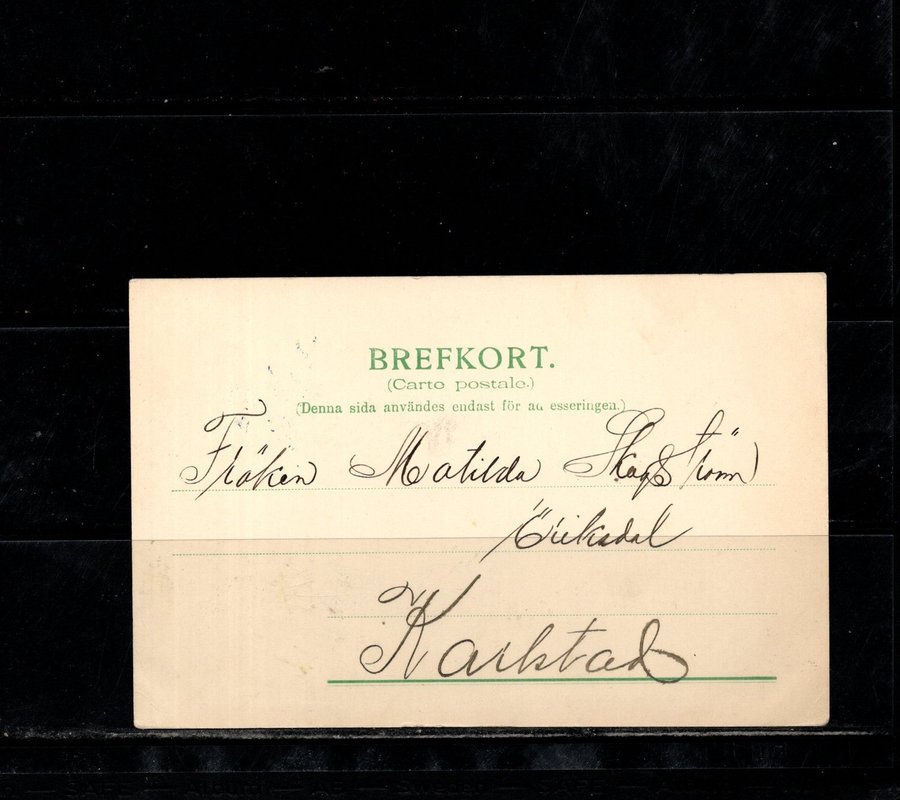 BREFKORT.
(Carte postale.)
(Denna sida användes endast för ad esseringen.)
Fröken Matilda Skagström
Eriksdal
Karlstad